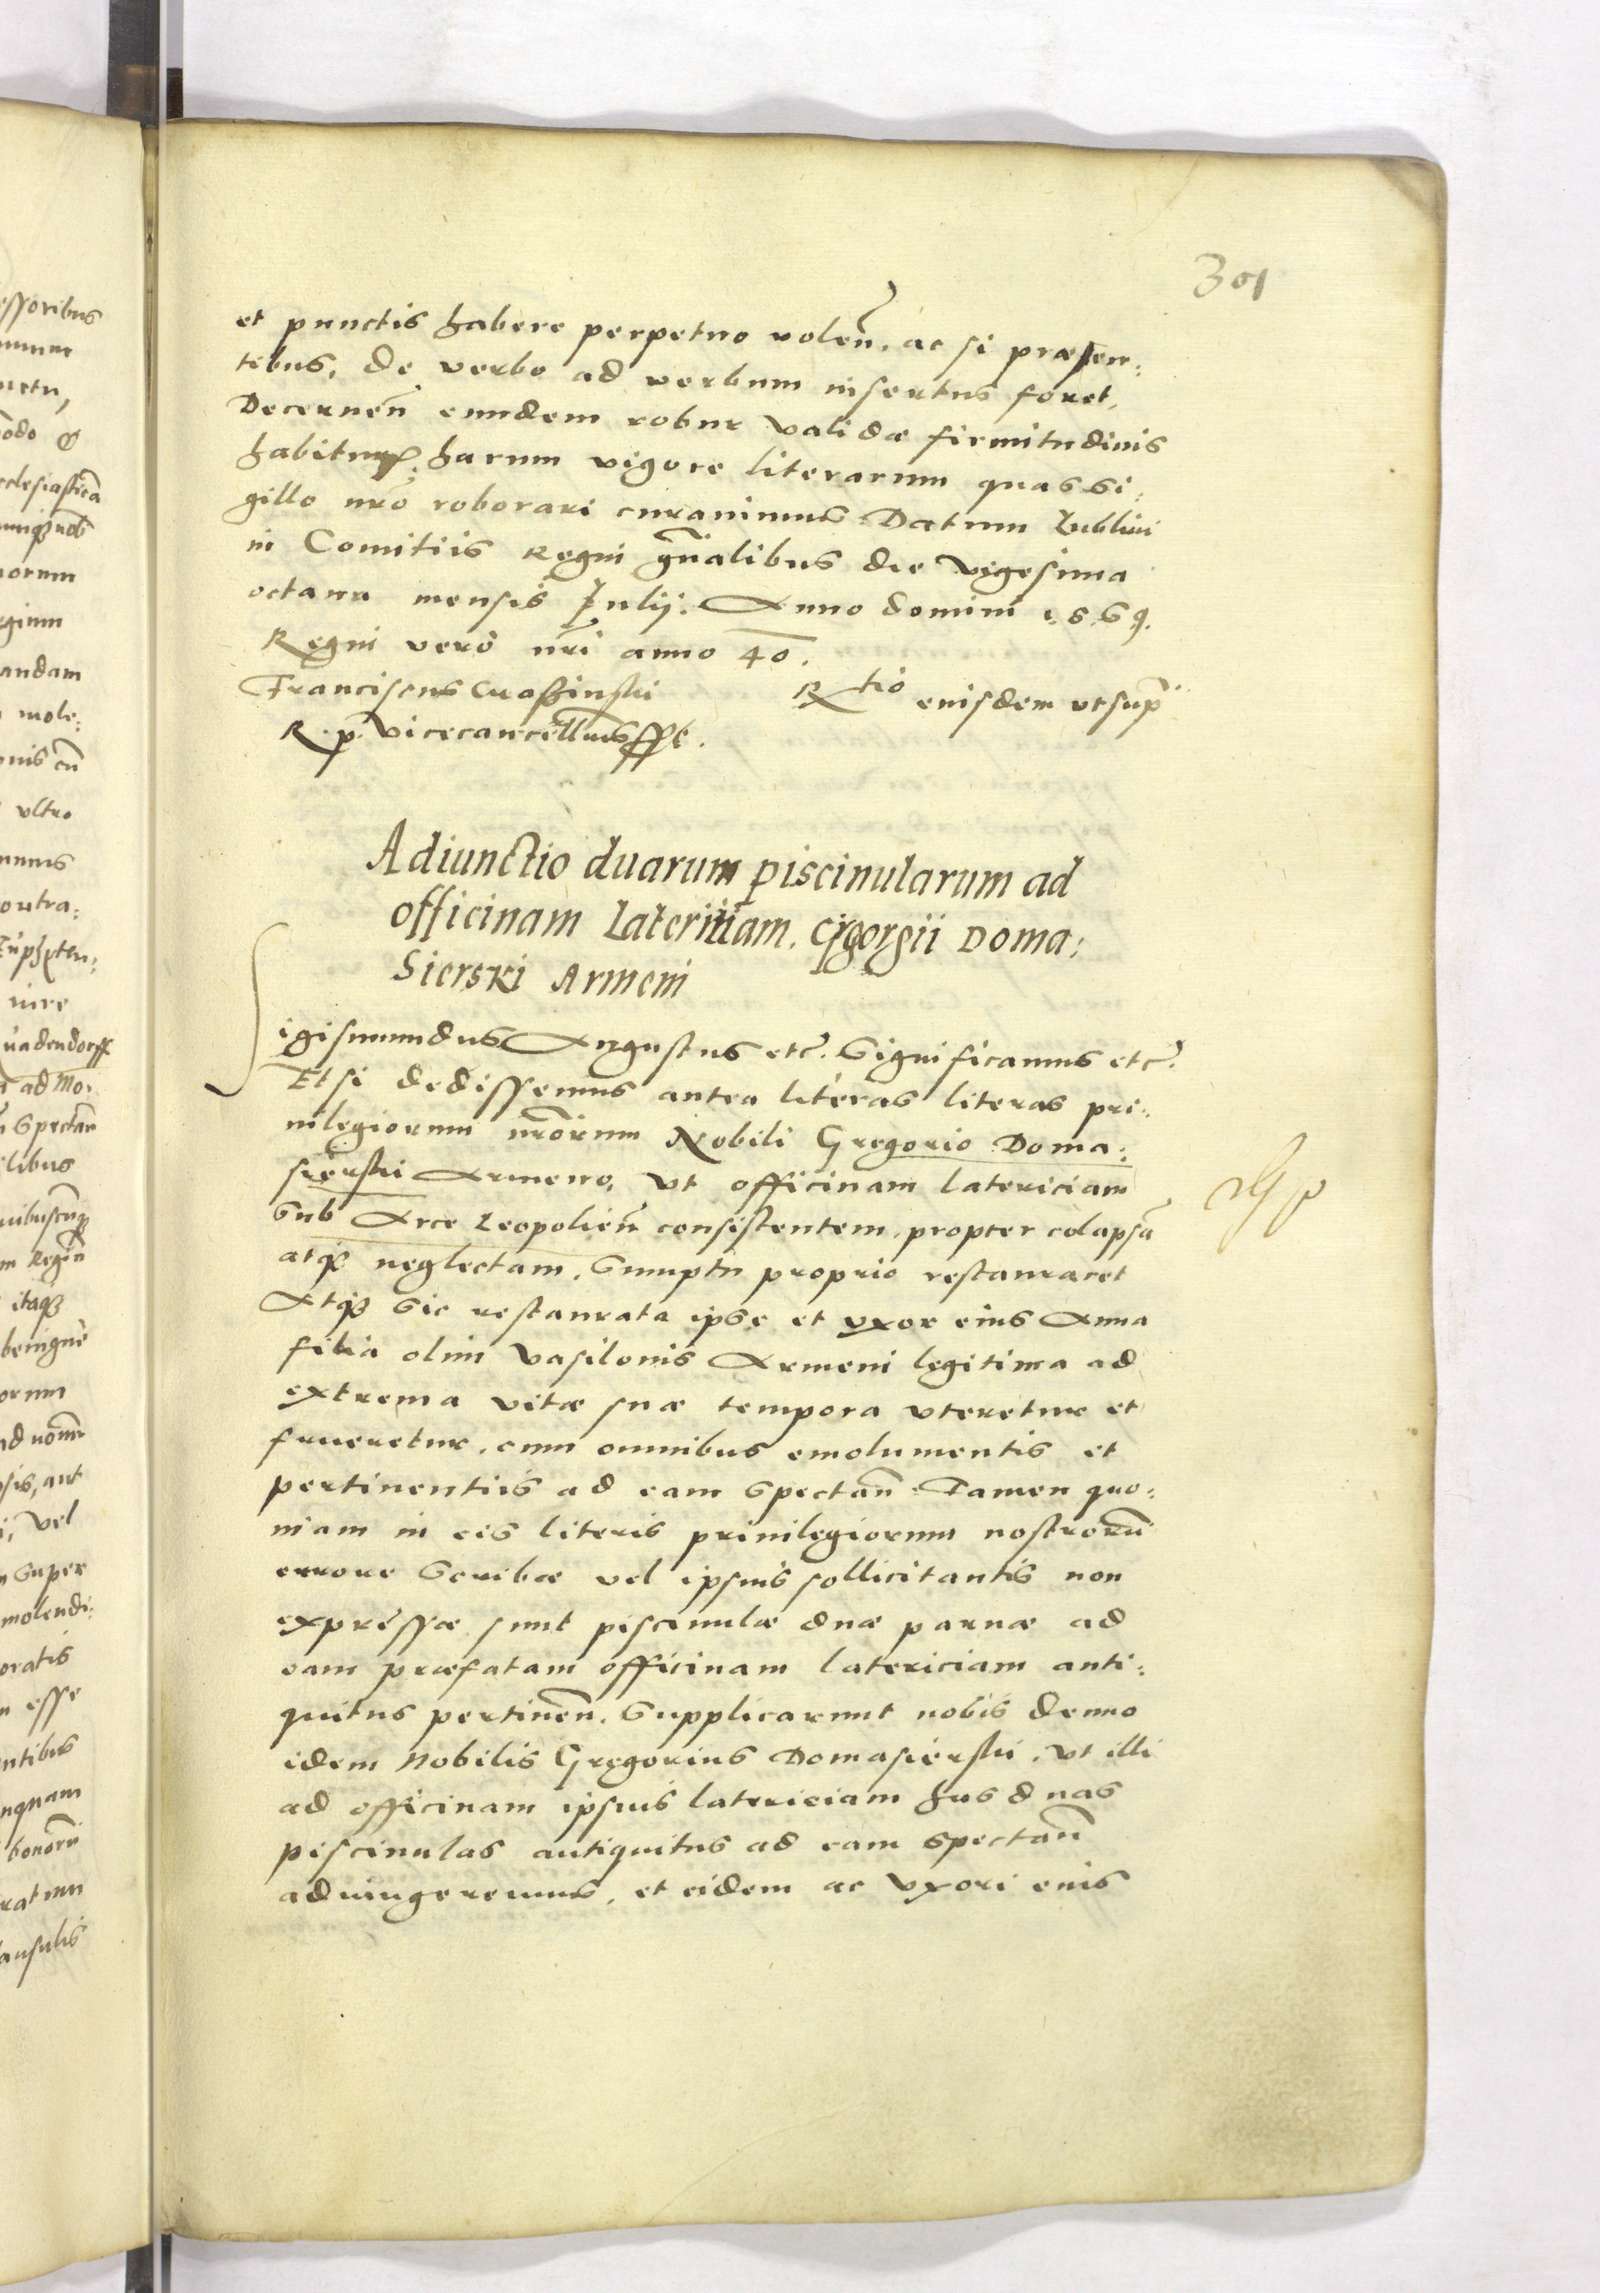 301
et punctis habere perpetuo volen̄. ac si præsen:
tibus, de verbo ad verbum insertus foret,
Decernen̄ eundem robur validæ firmitudinis
habitur. harum vigore literarum quas si:
gillo nrō roborari curavimus Datum Lublini
in Comitiis Regni gn̄alibus die vigesima
octava mensis Julij. Anno domini 1569.
Regni vero nrī anno 40.
Franciscus Crassinski
Rtio eiusdem ut sup̄
R. p. Vicecancellarius sst.
Adiunctio duarum piscinularum ad
officinam Latericiam. Grgorgii Doma:
Sierski Armeni
Sigismundus Augustus etc. Significamus etc.
Etsi dedissemus antea literas literas pri:
uilegiorum nrōrum Nobili Gregorio Doma:
sierski Armeno, ut officinam latericiam
Sub Arce Leopolien̄ consistentem, propter colapsā
atq; neglectam, Sumptu proprio restauraret
Atq; sic restaurata ipse et uxor eius Anna
filia olim Vasilonis Armeni legitima ad
extrema vitæ suæ tempora uteretur et
frueretur, cum omnibus emolumentis et
pertinentiis ad eam spectan̄ Tamen quo:
niam in eis literis priuilegiorum nostrorū
errore Scribæ vel ipsius sollicitantis non
expressæ sunt piscinulæ duæ paruæ ad
eam præfatam officinam latericiam anti:
quitus pertinen̄. Supplicarunt nobis denuo
idem Nobilis Gregorius Domasierski, ut illi
ad officinam ipsius latericiam has duas
piscinulas antiquitus ad eam spectan̄
adiungeremus, et eidem ac Uxori eius